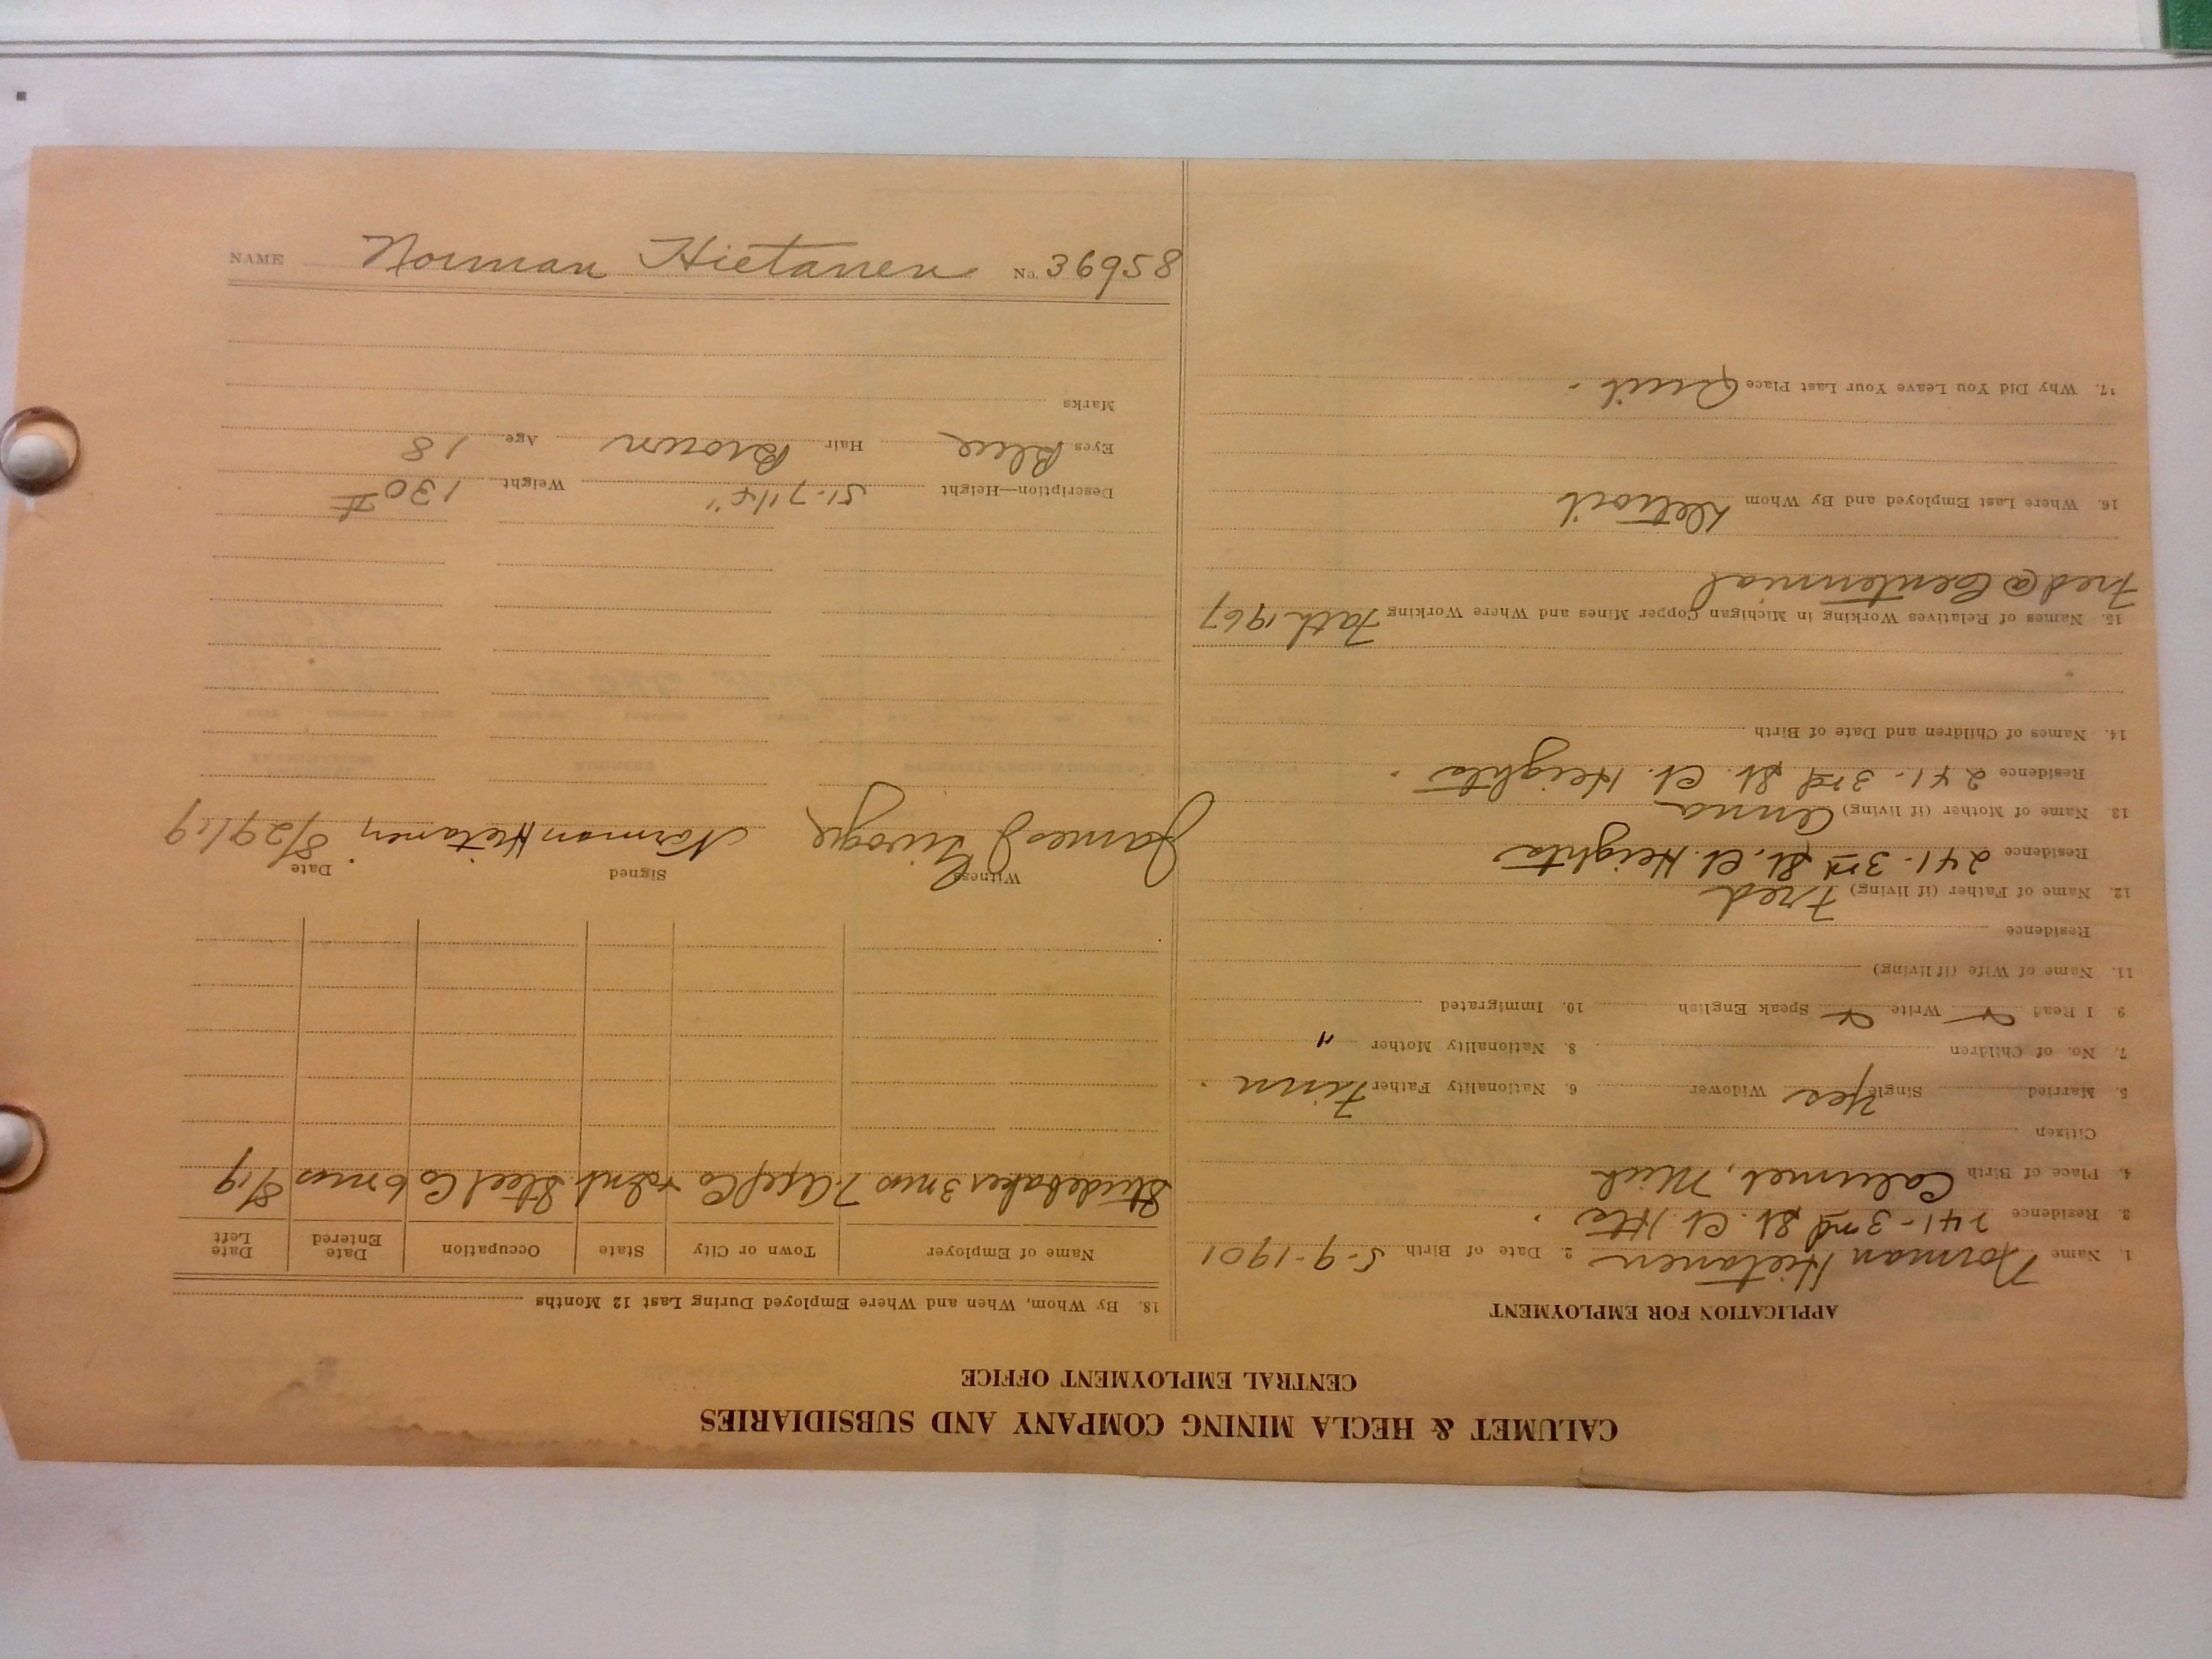 NAME Norman Hietanen No. 36958
CALUMET & HECLA MINING COMPANY AND SUBSIDIARIES
CENTRAL EMPLOYMENT OFFICE
APPLICATION FOR EMPLOYMENT
1. Name Norman Hietanen 2. Date of Birth 5-9-1901
3. Residence 241-3rd St. Cl. Hts.
4. Place of Birth Calumet, Mich
Citizen
5. Married Single Yes Widower 6. Nationality Father Finn
7. No. of Children 8. Nationality Mother "
9. I Read Write Speak English 10. Immigrated
11. Name of Wife (if living)
Residence
12. Name of Father (if living) Fred
Residence 241-3rd St. Cl. Heights
13. Name of Mother (if living) Anna
Residence 241-3rd St. Cl. Heights
14. Names of Children and Date of Birth
15. Names of Relatives Working in Michigan Copper Mines and Where Working Fath 1967
Fred @ Centennial
16. Where Last Employed and By Whom Detroit
17. Why Did You Leave Your Last Place Quit.
18. By Whom, When and Where Employed During Last 12 Months
Name of Employer Town or City State Occupation Date Entered Date Left
Studebaker 3 mos Co Steel Co 6 mos 8/19
Witness Signed Date
James J Norman Hietanen 8/29/19
Description—Height 5'-7 1/4" Weight 130 #
Eyes Blue Hair Brown Age 18
Marks